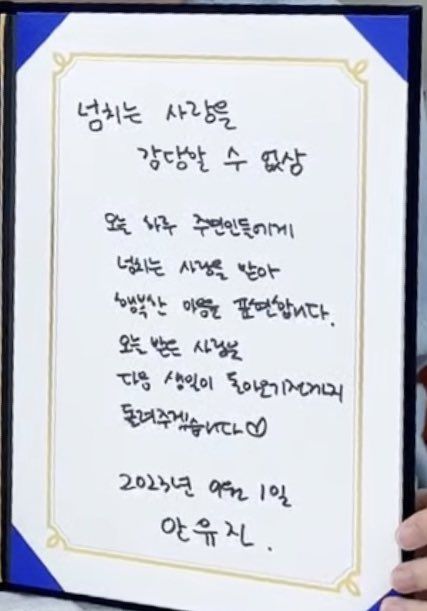 넘치는 사랑을
감당할 수 없상
오늘 하루 주변인들에게
넘치는 사랑을 받아
행복한 마음을 표현합니다.
오늘 받은 사랑을
다음 생일이 돌아오기전까지
돌려주겠습니다♡
2023년 9월 1일
안유진.